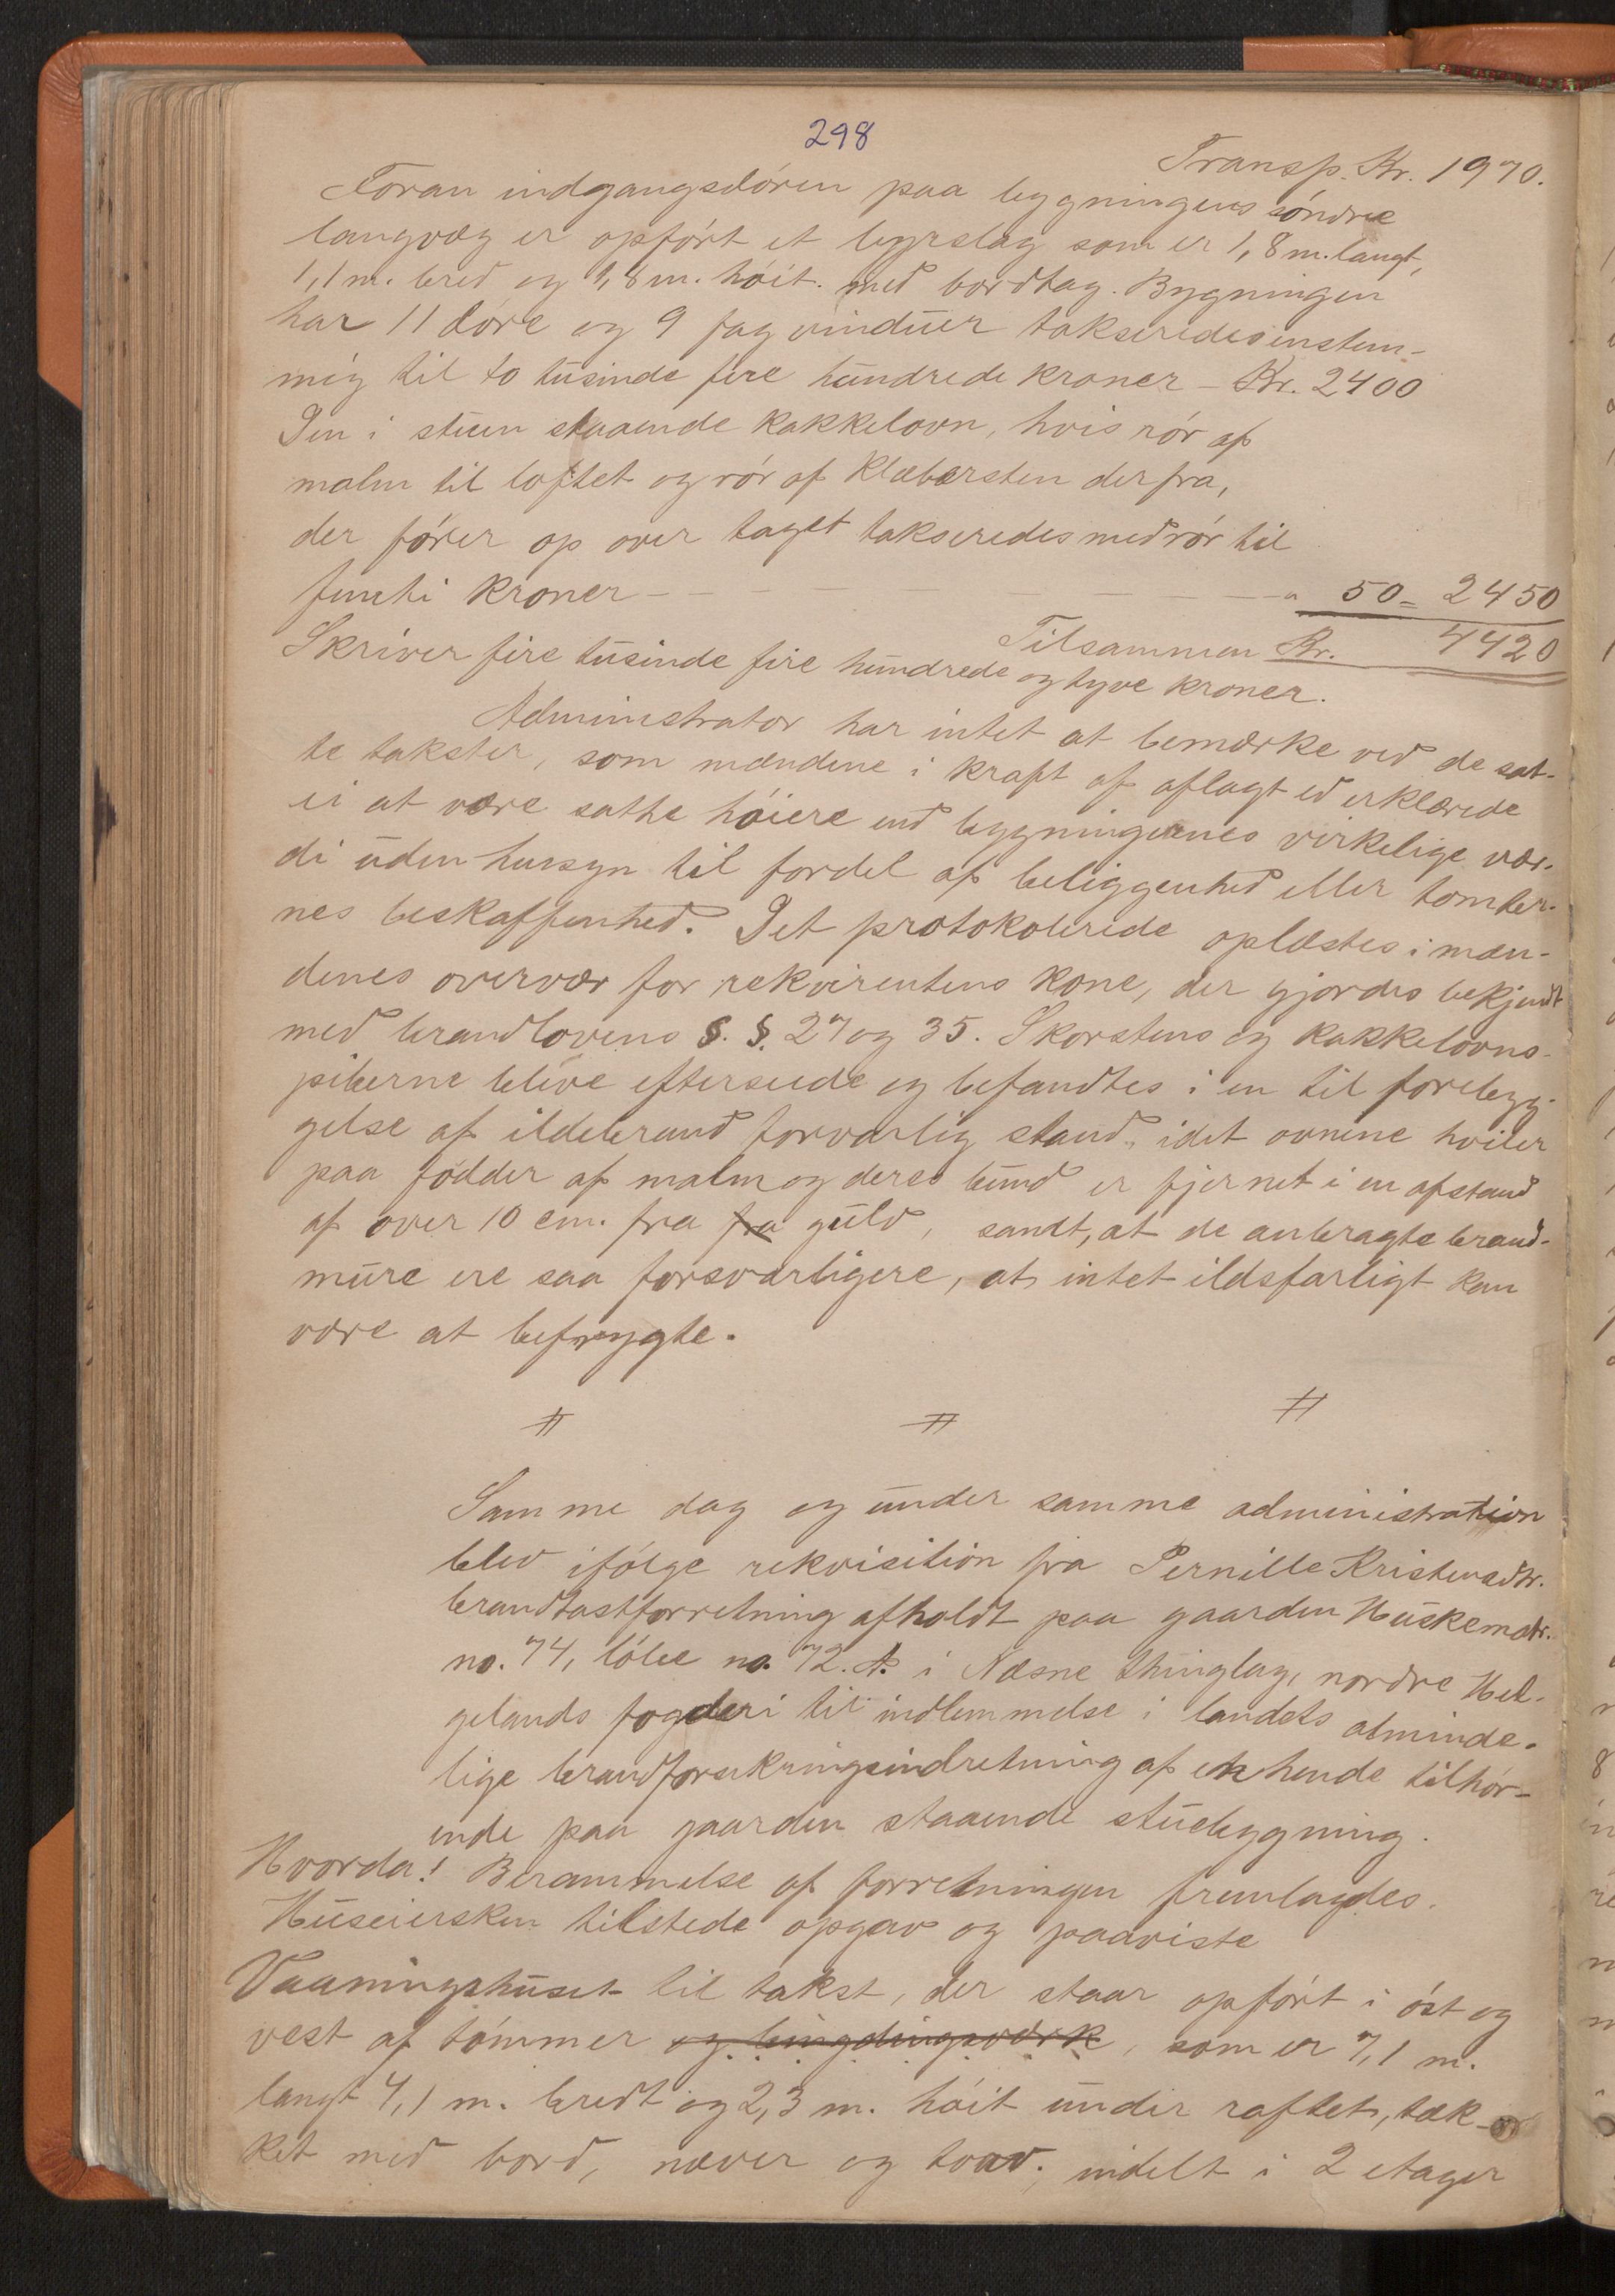 298
Transp. Kr. 1970.
Foran indgangsdören paa bygningens söndre
langvæg er opfört et byrslag som er 1,8 m. langt,
1,1 m. bred og 1,8 m. höit. med bordtag. Bygningen
har 11 döre og 9 fag vinduer takseredes enstem-
mig til to tusinde fire hundrede kroner - Kr. 2400
Den i stuen staaende kakkelovn, hvis rör af
malm til loftet og rör af Klæbersten derfra,
der förer op over taget takseredes med rör til
femti kroner - - - - - - - - " 50 = 2450
Tilsammen Kr. 4420
Skriver fire tusinde fire hundrede og tyve kroner.
Administrator har intet at bemærke ved de sat-
te takster, som mændene i kraft af aflagt ed erklærede
ei at være satte höiere end bygningernes virkelige vær-
di uden hensyn til fordel af beliggenhed eller tomter-
nes beskaffenhed. Det protokolerede oplæstes i mæn-
denes overvær for rekvirentens kone, der gjordes bekjendt
med brandlovens §. §. 27 og 35. Skorstens og kakkelovns-
piberne bleve efterseede og befandtes i en til forebyg-
gelse af ildebrand forvarlig stand, idet ovnene hviler
paa födder af malm og deres bund er fjernet i en afstand
af over 10 cm. fra fra gulv, samt, at de anbragte brand-
mure ere saa forsvarligere, at intet ildsfarligt kan
være at befrygte.
# # #
Samme dag og under samme administration
blev ifölge rekvisition fra Pernille Kristensdtr.
brandtastforretning afholdt paa gaarden Huskematr.
no. 74, löbe no. 72. A. i Næsne thinglag, nordre Hel-
gelands fogderi til indlemmelse i landets alminde-
lige brandforsikringsindretning af en hende tilhör-
ende paa gaarden staaende stuebygning.
Hvorda! Berammelse af forretningen fremlagdes.
Huseiersken tilstede opgav og paaviste
Vaaningshuset til takst, der staar opfört i öst og
vest af tömmer og bingdingsværk, som er 7,1 m.
langt 4,1 m. bredt og 2,3 m. höit under raftet, tæk-
ket med bord, næver og torv. indelt i 2 etager